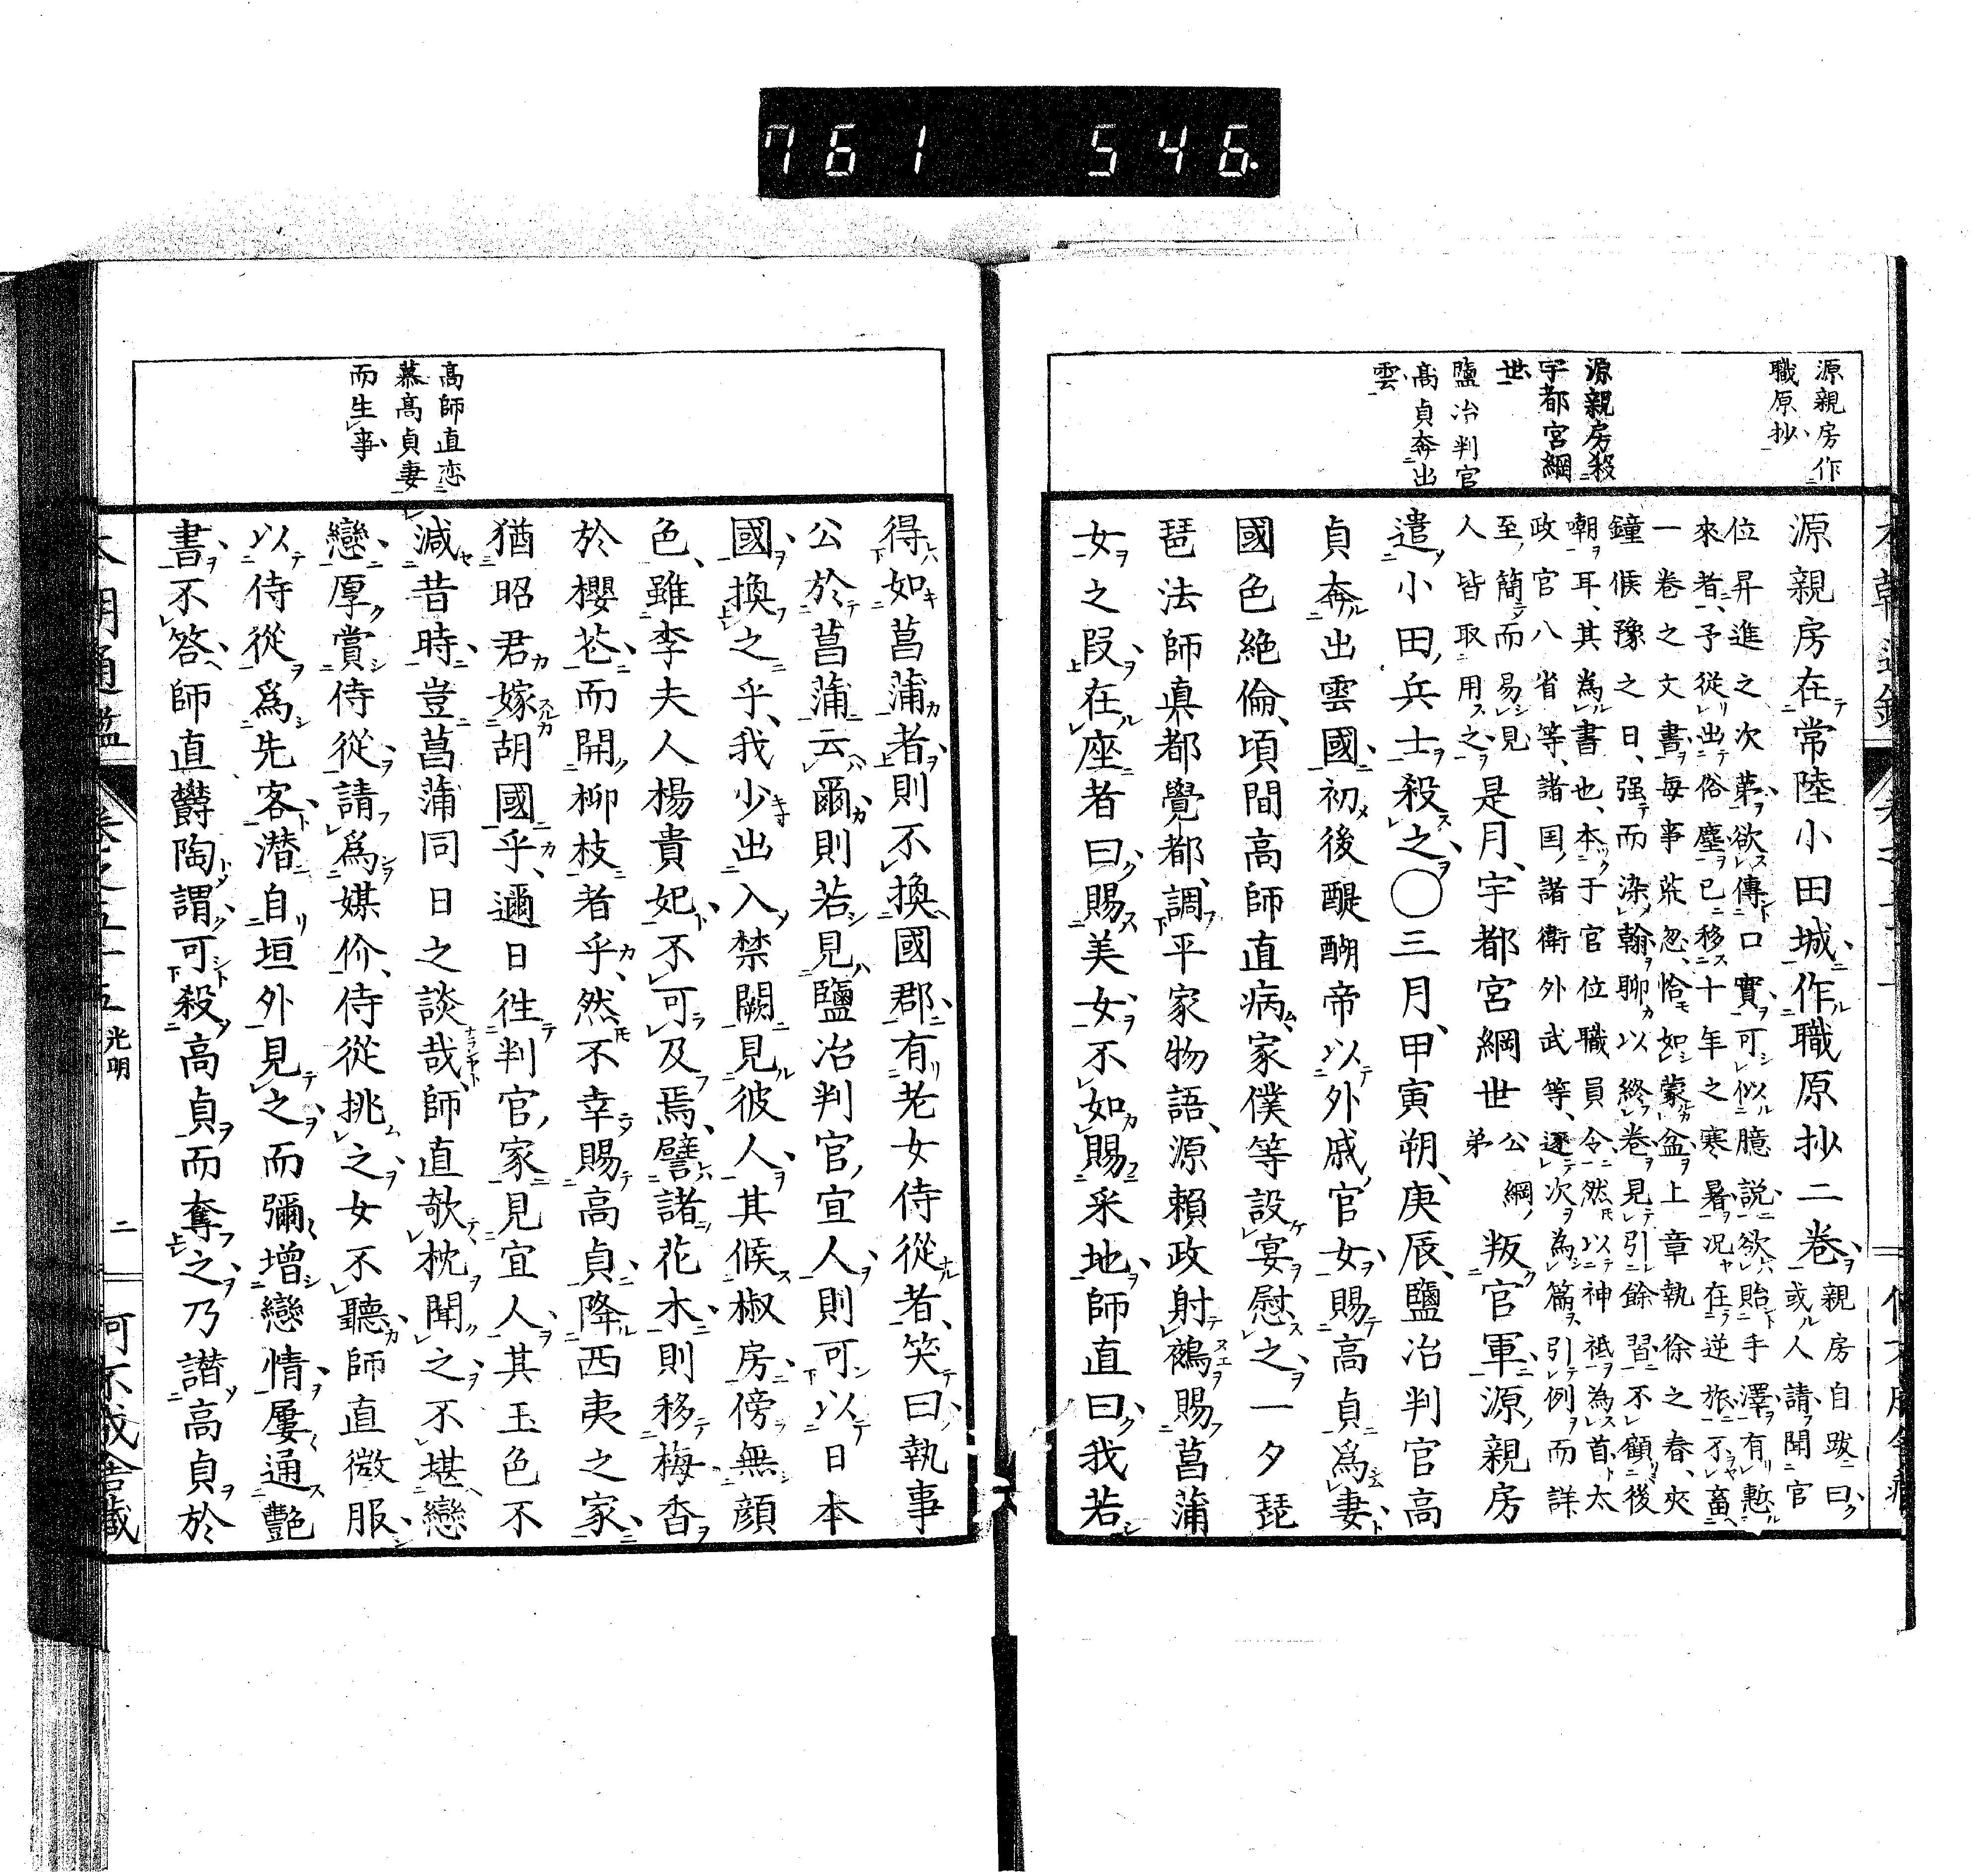 源親房作
職原抄
源親房殺
宇都宮綱
世
鹽冶判官
高貞奔出
雲
源親房在常陸小田城作職原抄二卷親房自跋曰
或人請聞官
位昇進之次第欲傳口實可似臆說欲貽手澤有慙
來者予從出俗塵已移十年之寒暑况在逆旅不畜
一卷之文書每事茫忽恰如蒙盆上章執徐之春夾
鐘候豫之日强而染翰聊以終卷見引餘習不顧後
嘲耳其為書也本于官位職員令然以神祇為首太
政官八省等諸国諸衛外武等逐次為篇引例而詳
至簡而易見
人皆取用之
是月宇都宮綱世公綱弟叛官軍源親房
遣小田兵士殺之〇三月甲寅朔庚辰鹽冶判官高
貞奔出雲國初後醍醐帝以外戚官女賜高貞爲妻
國色絶倫頃間高師直病家僕等設宴慰之一夕琵
琶法師眞都覺都調平家物語源賴政射鵺賜菖蒲
女之段在座者曰賜美女不如賜采地師直曰我若
高師直恋
慕高貞妻
而生事
得如菖蒲者則不換國郡有老女侍從者笑曰執事
公於菖蒲云爾則若見鹽冶判官宜人則可以日本
國換之乎我少出入禁闕見彼人其候椒房傍無顔
色雖李夫人楊貴妃不可及焉譬諸花木則移梅香
於櫻花而開柳枝者乎然不幸賜高貞降西夷之家
猶昭君嫁胡國乎邇日往判官家見宜人其玉色不
減昔時豈菖蒲同日之談哉師直欹枕聞之不堪戀
戀厚賞侍從請爲媒价侍從挑之女不聽師直微服
以侍從爲先客潛自垣外見之而彌增戀情屢通艷
書不答師直欝陶謂可殺高貞而奪之乃譖高貞於
光明
二